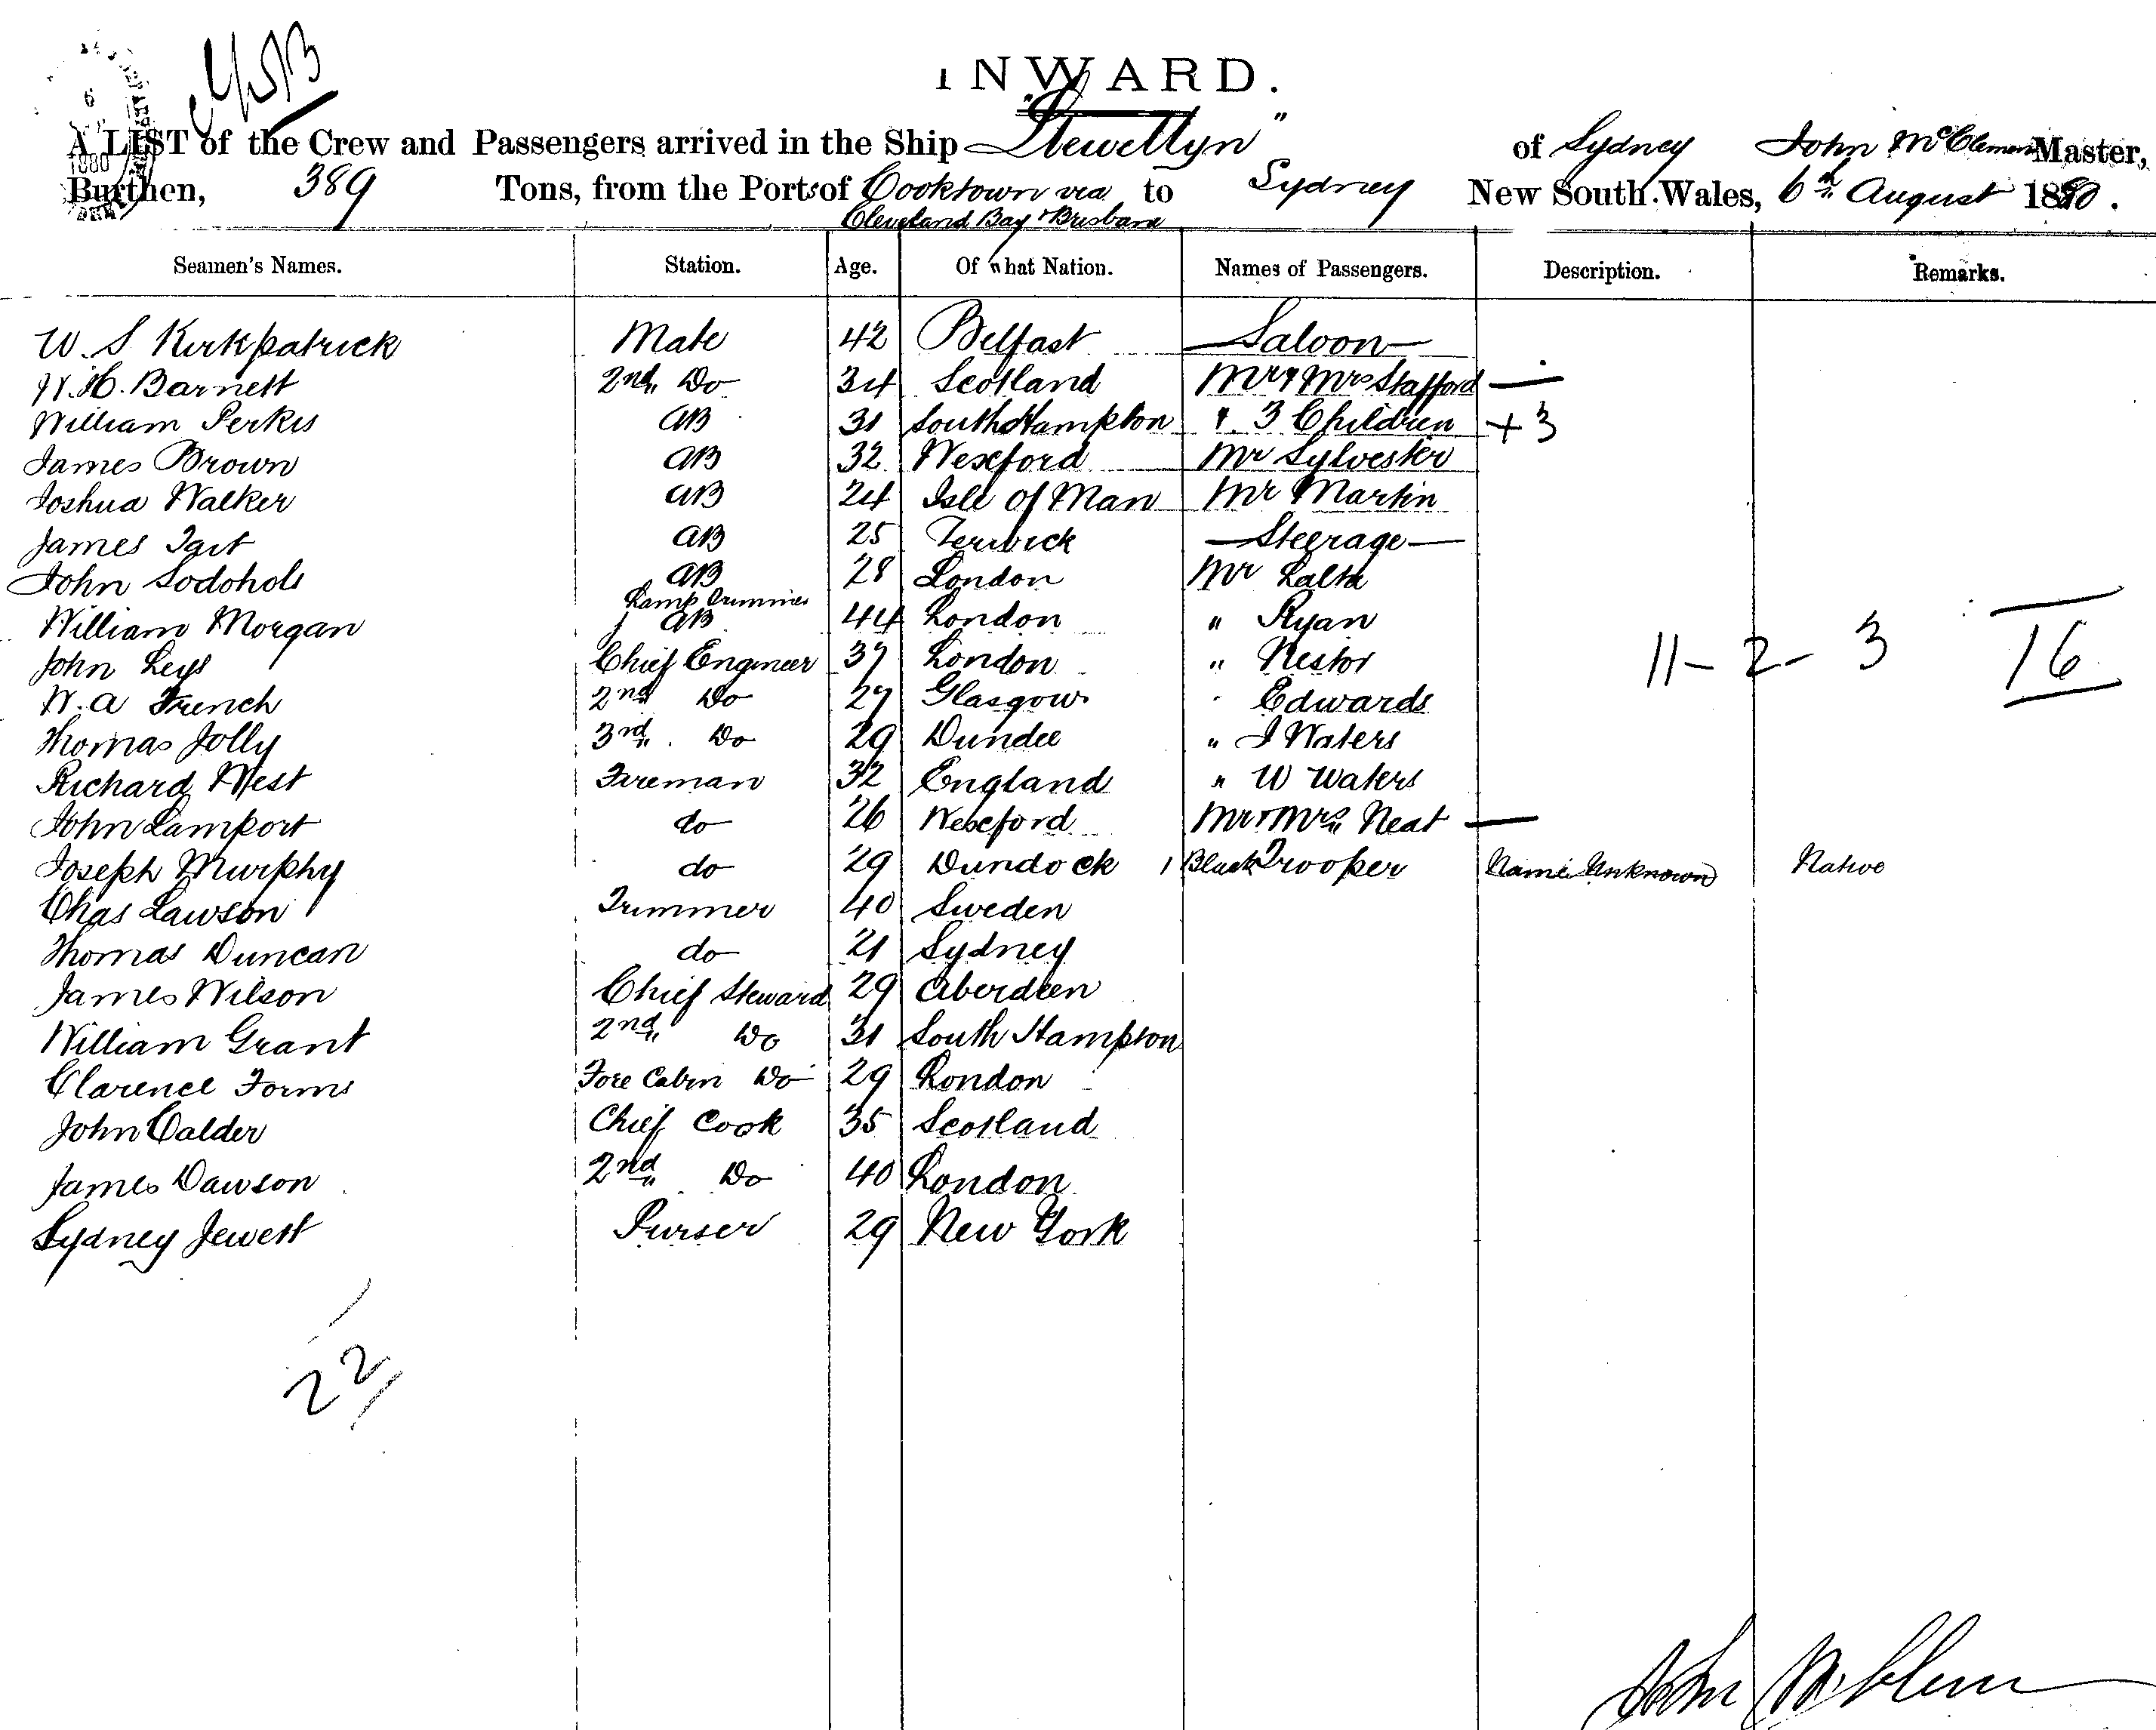 INWARD.
A LIST of the Crew and Passengers arrived in the Ship "Llewellyn" of Sydney John McClemens Master,
Burthen, 389 Tons, from the Ports of Cooktown via to Sydney New South Wales, 6th August 1880.
Cleveland Bay & Brisbane
Seamen's Names. Station. Age. Of what Nation. Names of Passengers. Description. Remarks.
W. S Kirkpatrick Mate 42 Belfast Saloon
W. H. Barnett 2nd Do 34 Scotland Mr & Mrs Stafford —
William Perkis AB 31 SouthHampton & 3 Children + 3
James Brown AB 32 Wexford Mr Sylvester
Joshua Walker AB 24 Isle of Man Mr Martin
James Tait AB 25 Steerage
John AB 28 London Mr
Lamp Trimmer
William Morgan AB 44 London " Ryan
11 - 2 - 3 16
John Leys Chief Engineer 37 London " Nestor
W. A French 2nd Do 27 Glasgow " Edwards
Thomas Jolly 3rd Do 29 Dundee " J Waters
Richard West Fireman 32 England " W Waters
John Lamport do 26 Wexford Mr & Mrs Neat —
Joseph Murphy do 29 Dundock 1 Black Trooper Name Unknown Native
Chas Lawson Trimmer 40 Sweden
Thomas Duncan do 21 Sydney
James Wilson Chief Steward 29 Aberdeen
William Grant 2nd Do 31 South Hampton
Clarence Forms Fore Cabin Do 29 London
John Calder Chief Cook 35 Scotland
James Dawson 2nd Do 40 London
Sydney Jewett Purser 29 New York
22